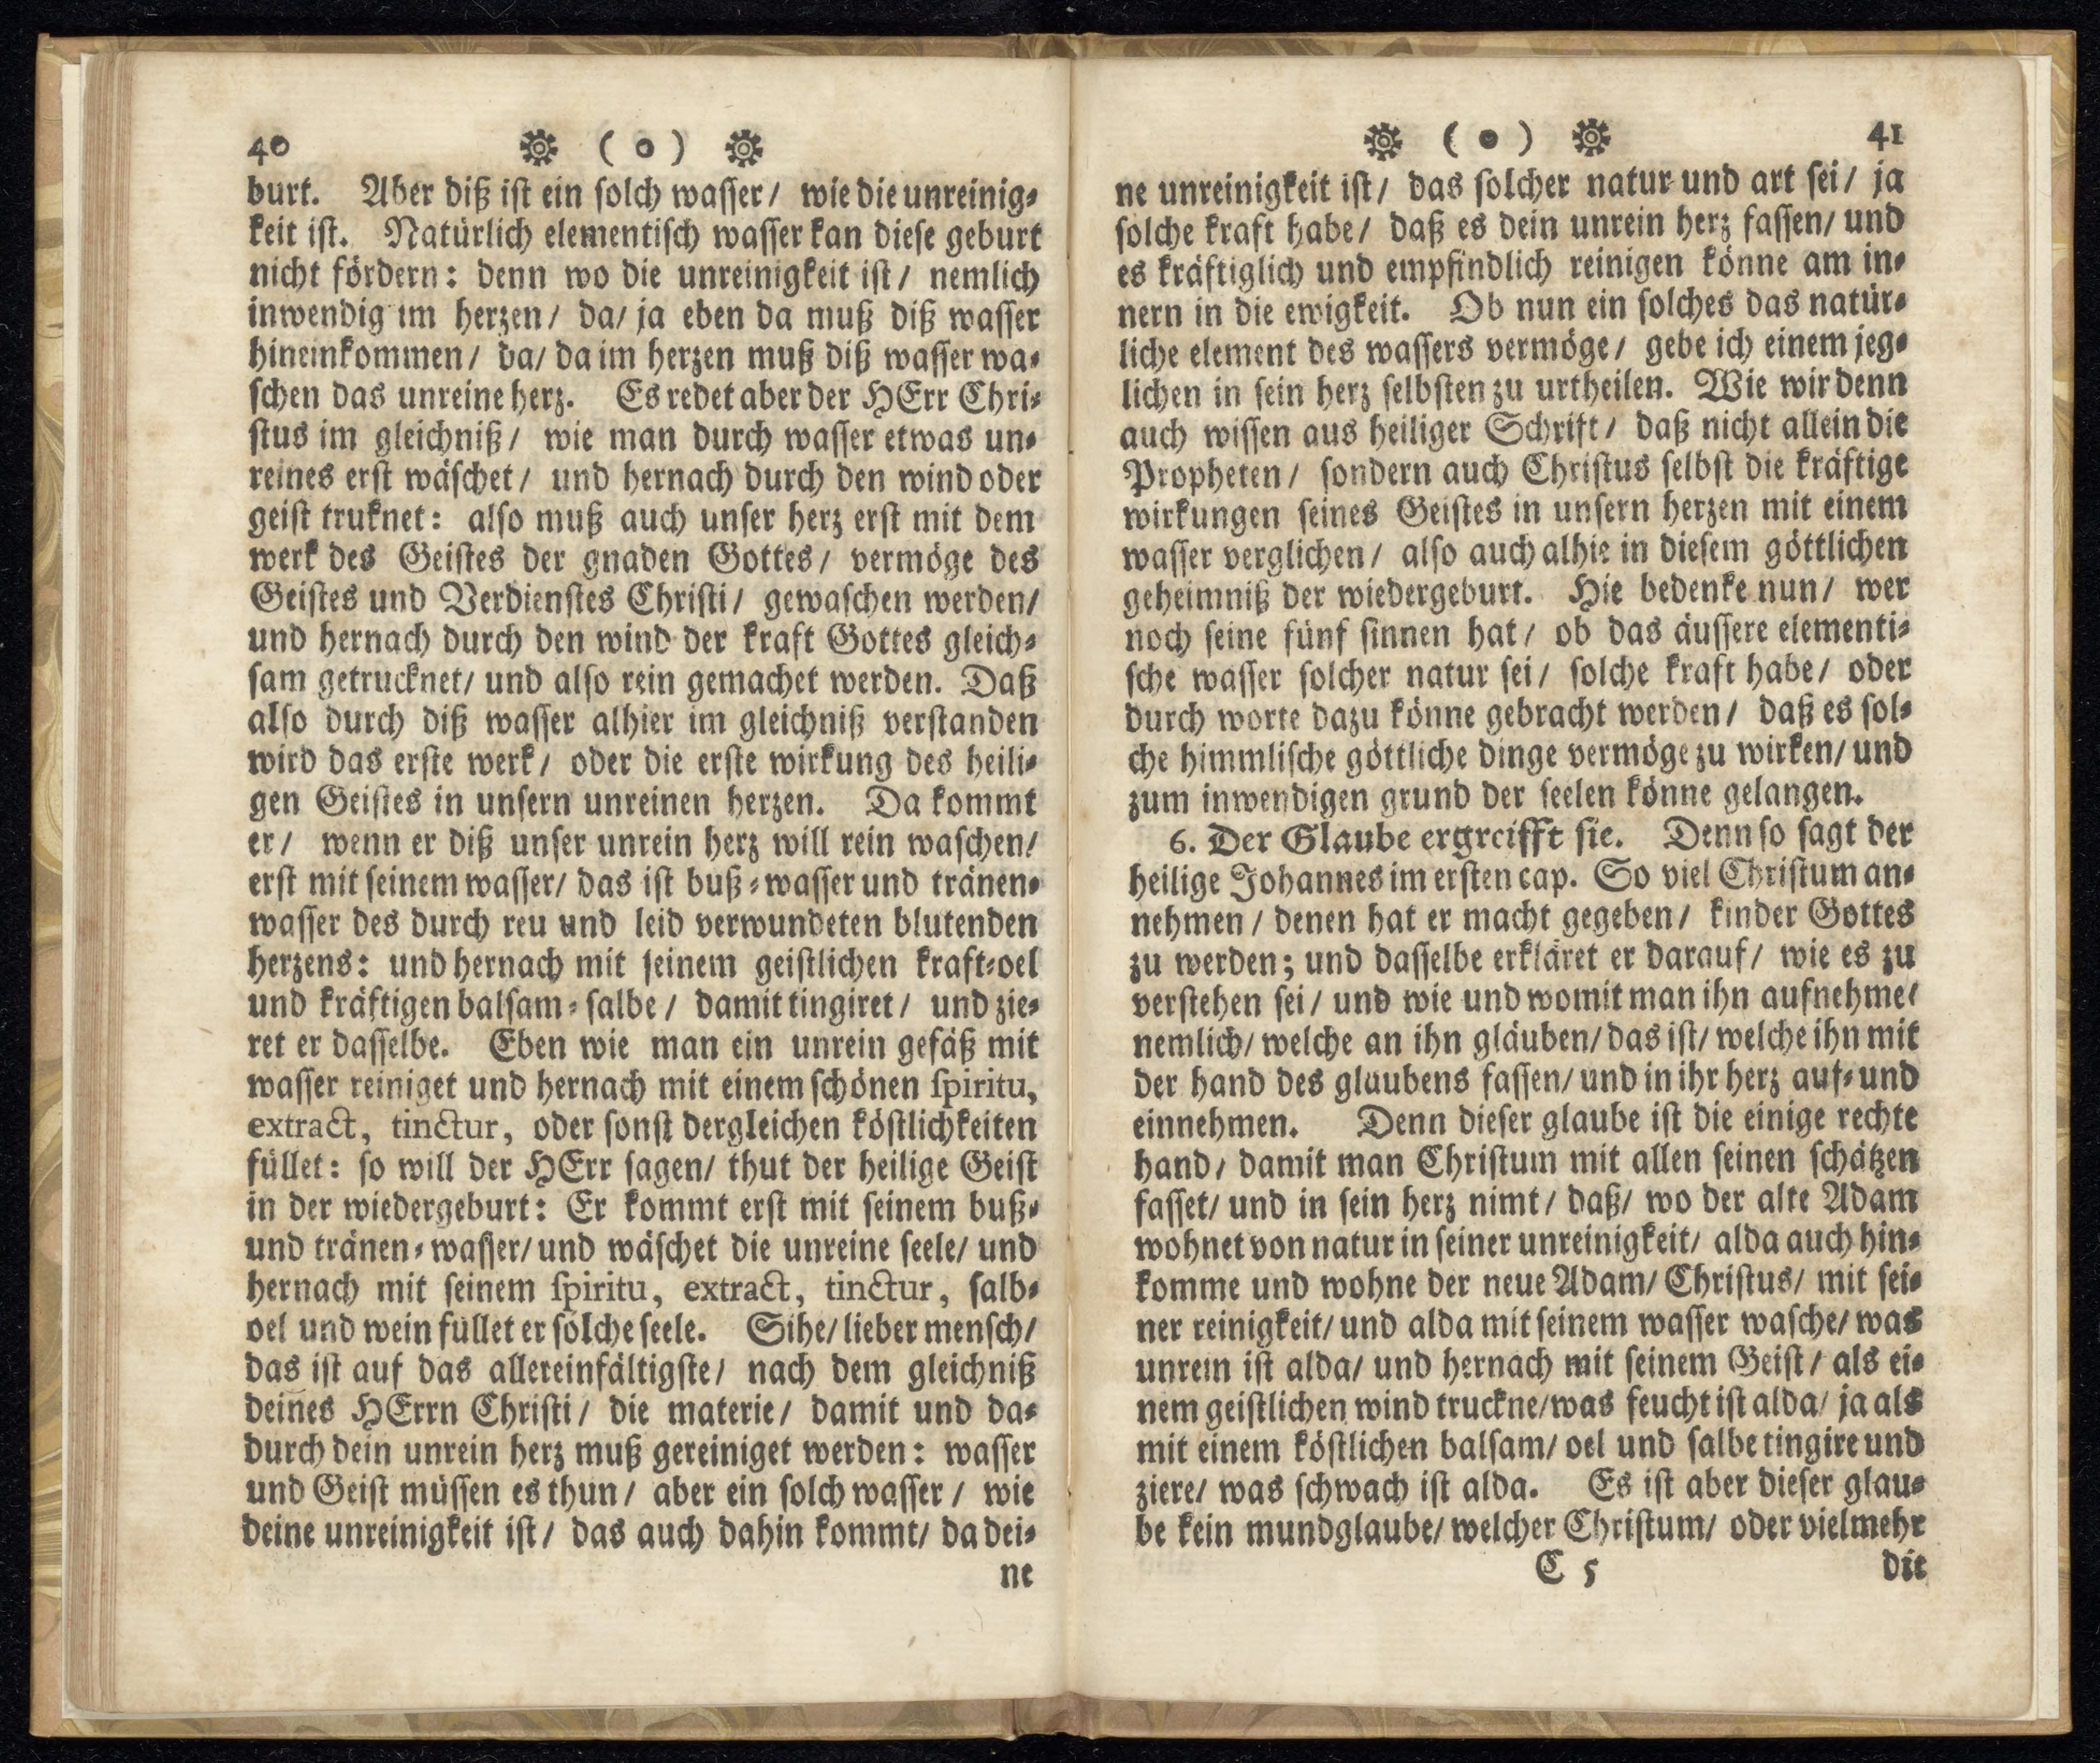 40 ❁ ( o ) ❁
burt. Aber diß ist ein solch wasser/ wie die unreinig⸗
keit ist. Natürlich elementisch wasser kan diese geburt
nicht fördern: denn wo die unreinigkeit ist/ nemlich
inwendig im herzen/ da/ ja eben da muß diß wasser
hineinkommen/ da/ da im herzen muß diß wasser wa⸗
schen das unreine herz. Es redet aber der HErr Chri⸗
stus im gleichniß/ wie man durch wasser etwas un⸗
reines erst wäschet/ und hernach durch den wind oder
geist truknet: also muß auch unser herz erst mit dem
werk des Geistes der gnaden Gottes/ vermöge des
Geistes und Verdienstes Christi/ gewaschen werden/
und hernach durch den wind der kraft Gottes gleich⸗
sam getrucknet/ und also rein gemachet werden. Daß
also durch diß wasser alhier im gleichniß verstanden
wird das erste werk/ oder die erste wirkung des heili⸗
gen Geistes in unsern unreinen herzen. Da kommt
er/ wenn er diß unser unrein herz will rein waschen/
erst mit seinem wasser/ das ist buß⸗wasser und tränen⸗
wasser des durch reu und leid verwundeten blutenden
herzens: und hernach mit seinem geistlichen kraft⸗oel
und kräftigen balsam⸗salbe/ damit tingiret/ und zie⸗
ret er dasselbe. Eben wie man ein unrein gefäß mit
wasser reiniget und hernach mit einem schönen spiritu,
extract, tinctur, oder sonst dergleichen köstlichkeiten
füllet: so will der HErr sagen/ thut der heilige Geist
in der wiedergeburt: Er kommt erst mit seinem buß⸗
und tränen⸗wasser/ und wäschet die unreine seele/ und
hernach mit seinem spiritu, extract, tinctur, salb⸗
oel und wein füllet er solche seele. Sihe/ lieber mensch/
das ist auf das allereinfältigste/ nach dem gleichniß
deines HErrn Christi/ die materie/ damit und da⸗
durch dein unrein herz muß gereiniget werden: wasser
und Geist müssen es thun/ aber ein solch wasser/ wie
deine unreinigkeit ist/ das auch dahin kommt/ da dei⸗
ne
❁ ( o ) ❁ 41
ne unreinigkeit ist/ das solcher natur und art sei/ ja
solche kraft habe/ daß es dein unrein herz fassen/ und
es kräftiglich und empfindlich reinigen könne am in⸗
nern in die ewigkeit. Ob nun ein solches das natür⸗
liche element des wassers vermöge/ gebe ich einem jeg⸗
lichen in sein herz selbsten zu urtheilen. Wie wir denn
auch wissen aus heiliger Schrift/ daß nicht allein die
Propheten/ sondern auch Christus selbst die kräftige
wirkungen seines Geistes in unsern herzen mit einem
wasser verglichen/ also auch alhie in diesem göttlichen
geheimniß der wiedergeburt. Hie bedenke nun/ wer
noch seine fünf sinnen hat/ ob das äussere elementi⸗
sche wasser solcher natur sei/ solche kraft habe/ oder
durch worte dazu könne gebracht werden/ daß es sol⸗
che himmlische göttliche dinge vermöge zu wirken/ und
zum inwendigen grund der seelen könne gelangen.
6. Der Glaube ergreifft sie. Denn so sagt der
heilige Johannes im ersten cap. So viel Christum an⸗
nehmen/ denen hat er macht gegeben/ kinder Gottes
zu werden; und dasselbe erkläret er darauf/ wie es zu
verstehen sei/ und wie und womit man ihn aufnehme/
nemlich/ welche an ihn gläuben/ das ist/ welche ihn mit
der hand des glaubens fassen/ und in ihr herz auf⸗und
einnehmen. Denn dieser glaube ist die einige rechte
hand/ damit man Christum mit allen seinen schätzen
fasset/ und in sein herz nimt/ daß/ wo der alte Adam
wohnet von natur in seiner unreinigkeit/ alda auch hin⸗
komme und wohne der neue Adam/ Christus/ mit sei⸗
ner reinigkeit/ und alda mit seinem wasser wasche/ was
unrein ist alda/ und hernach mit seinem Geist/ als ei⸗
nem geistlichen wind truckne/ was feucht ist alda/ ja als
mit einem köstlichen balsam/ oel und salbe tingire und
ziere/ was schwach ist alda. Es ist aber dieser glau⸗
be kein mundglaube/ welcher Christum/ oder vielmehr
C 5 die